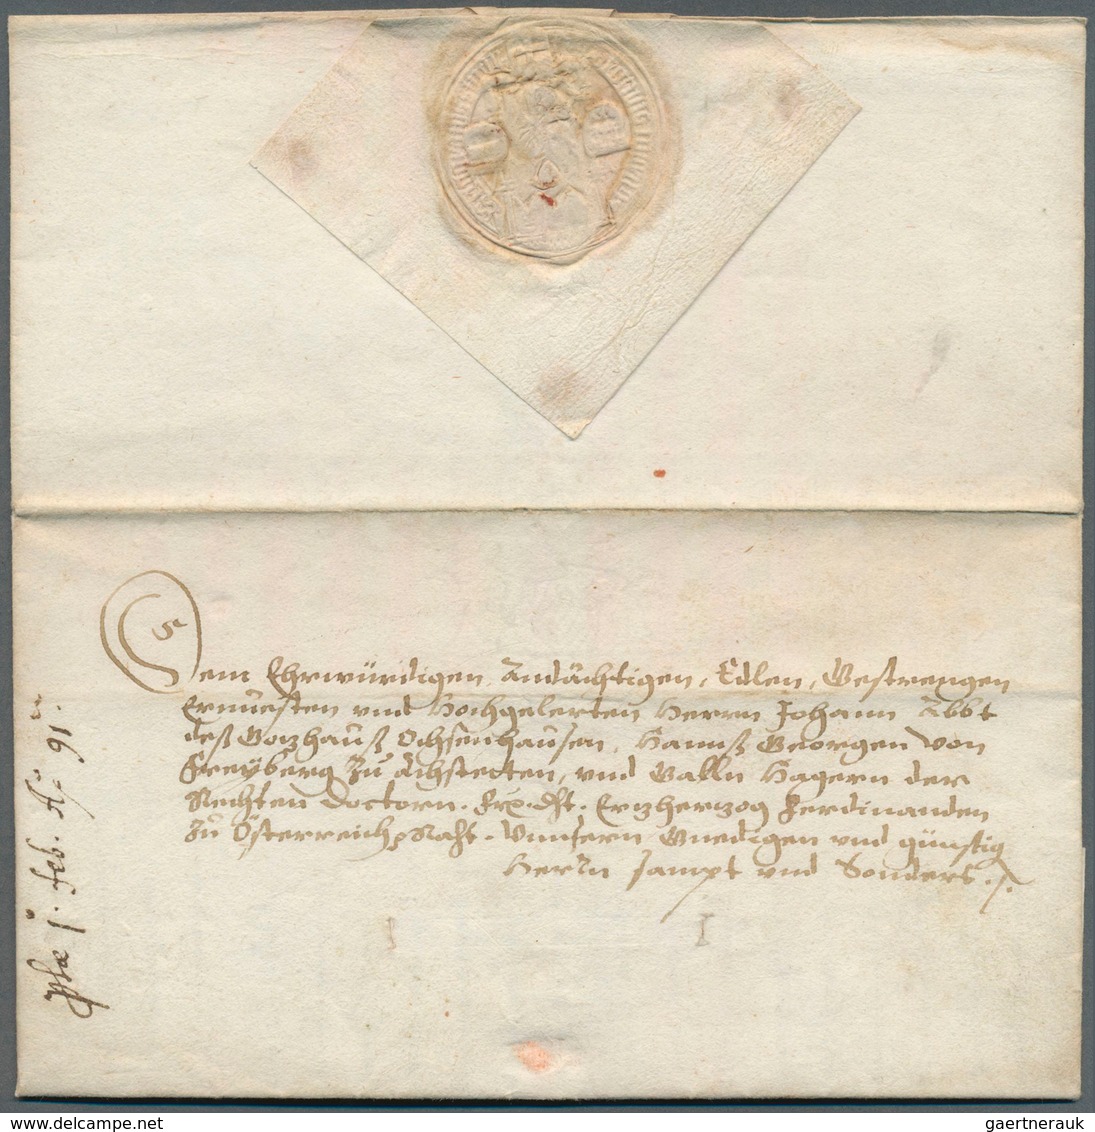 Dem Ehrwürdigen, Andächtigen, Edlen, Gestrengen
Ernuesten vnd Hochgelerten Herrn Johann Abbt
deß Gotzhauß Ochsenhausen, Hannß Georgen von
Freyberg Zu Achstetten, vnd Galln Hagern der
Rechten Doctorn. Frx. Dht. Ertzhertzog Ferdinanden
Zu Österreich, Räht. Vnnsern Gnedigen vnd günstig
Herrn sampt vnd Sonders
1. feb. Aº 91.
delcampe.net
gaertnerauk